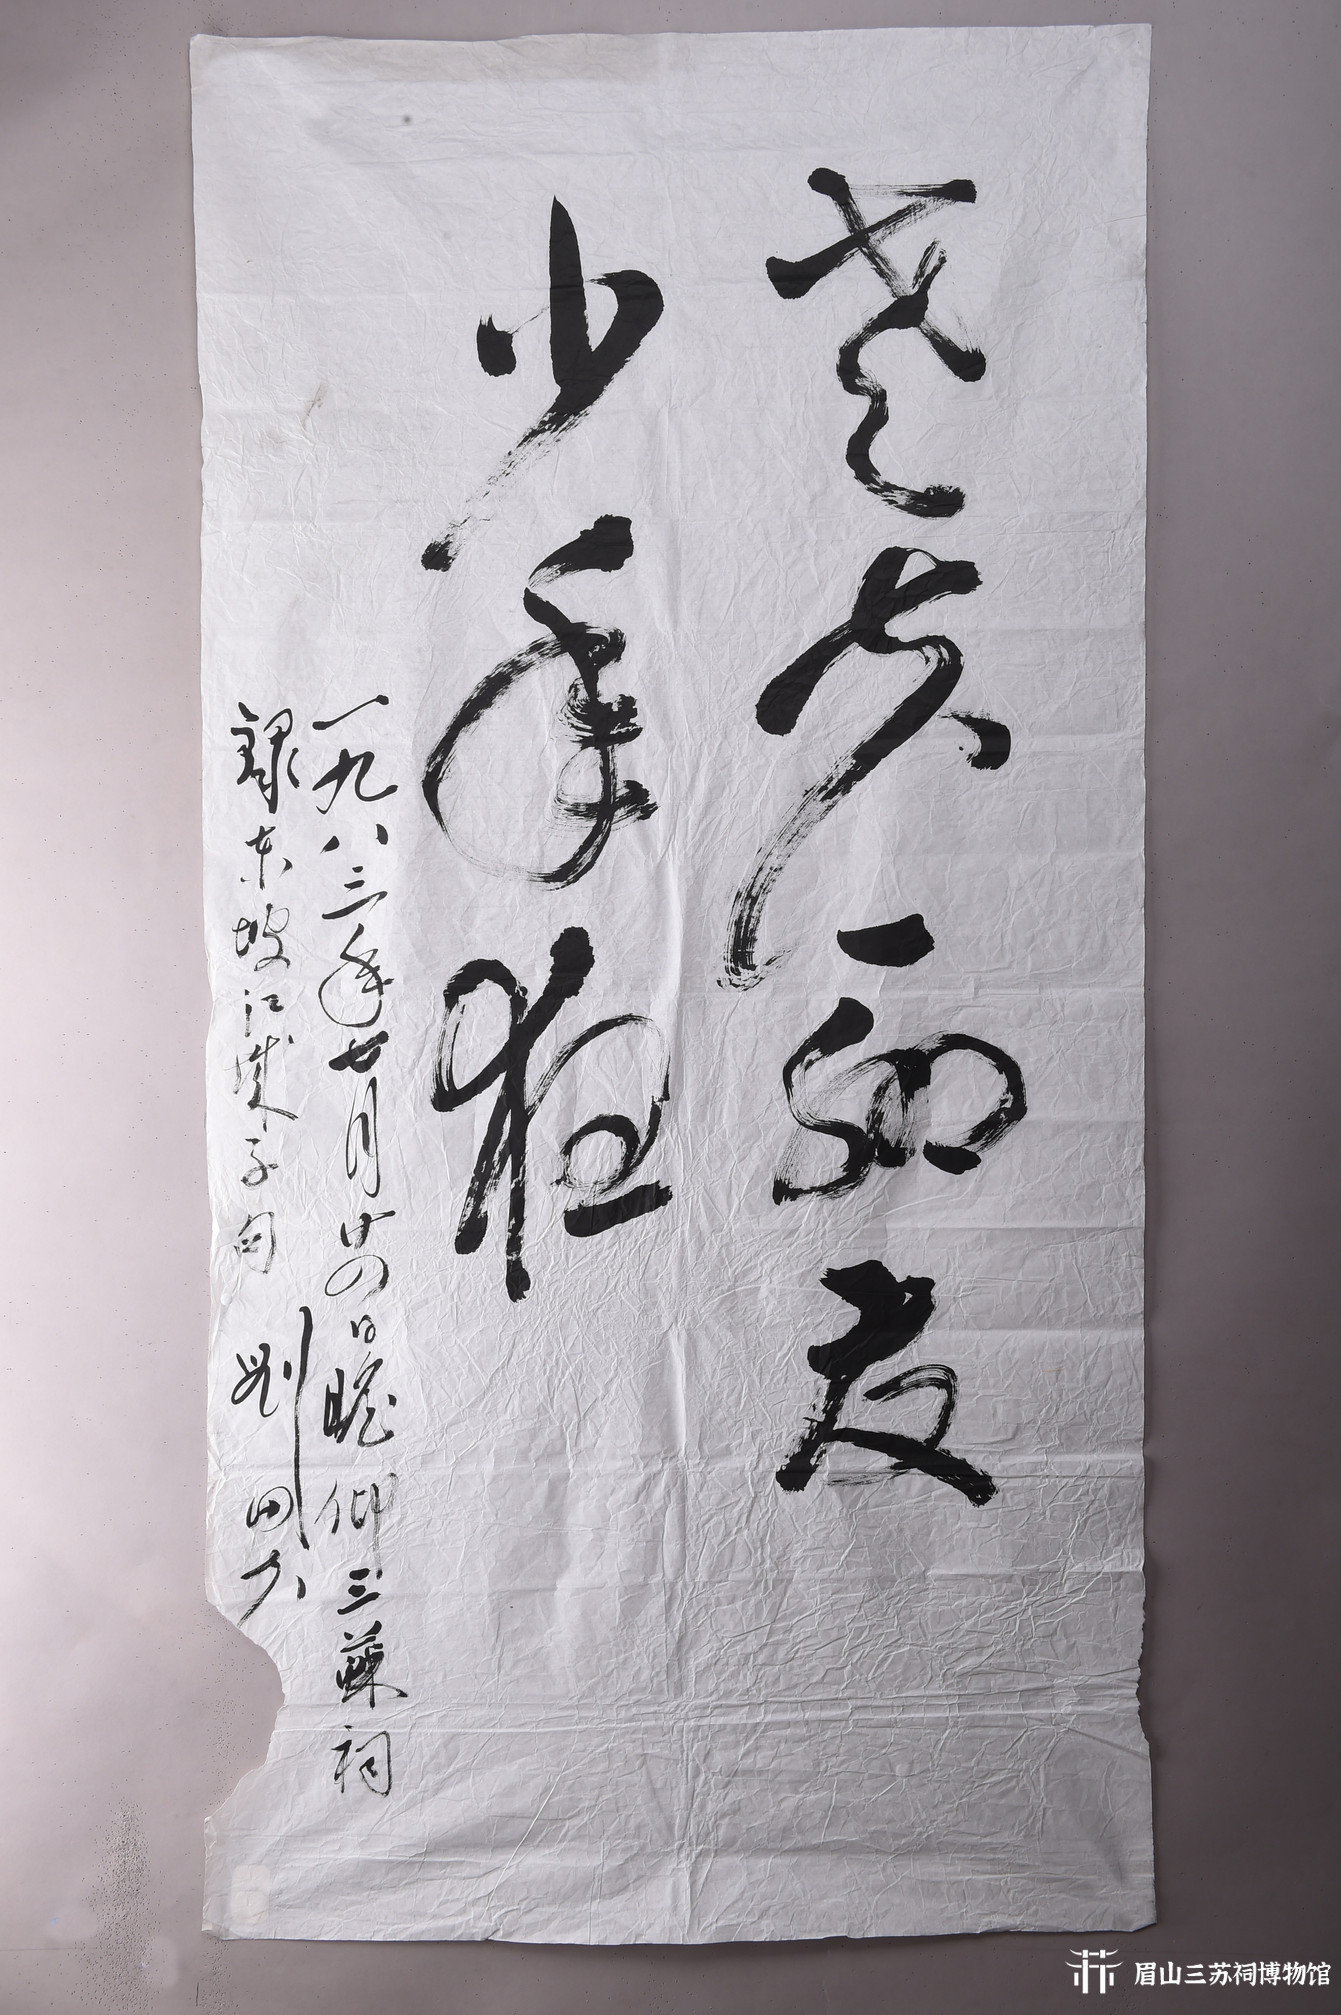 老夫聊发
少年狂
一九八三年七月廿四日瞻仰三蘇祠
録东坡江城子句 刘田夫
眉山三苏祠博物馆